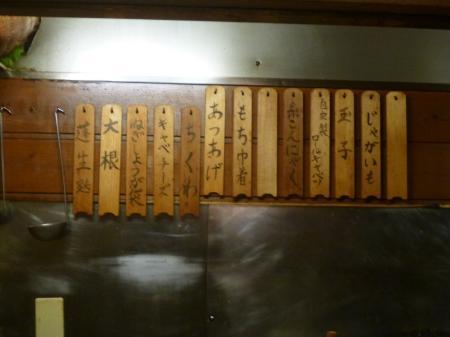 じゃがいも
玉子
自家製
ロールキャベツ
赤こんにゃく
もち巾着
あつあげ
ちくわ
キャベチーズ
ねぎしょうが袋
大根
蓬生麩